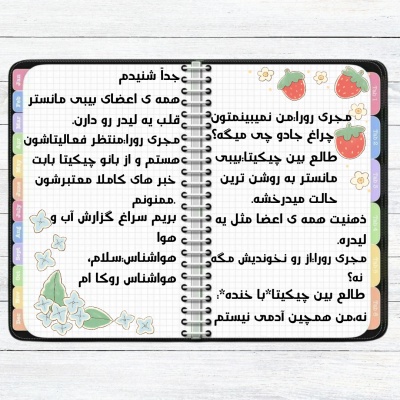 مجری رورا:من نمیبینمتون
چراغ جادو چی میگه؟
طالع بین چیکیتا:بیبی
مانستر به روشن ترین
حالت میدرخشه.
ذهنیت همه ی اعضا مثل یه
لیدره.
مجری رورا:از رو نخوندیش مگه
نه؟
طالع بین چیکیتا*با خنده*:
نه،من همچین آدمی نیستم
جدآ شنیدم
همه ی اعضای بیبی مانستر
قلب یه لیدر رو دارن.
مجری رورا:منتظر فعالیتاشون
هستم و از بانو چیکیتا بابت
خبر های کاملا معتبرشون
ممنونم.
بریم سراغ گزارش آب و
هوا
هواشناس:سلام،
هواشناس روکا ام